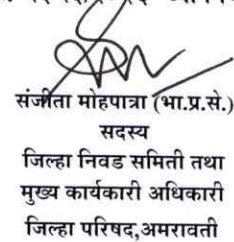 संजीता मोहपात्रा (भा.प्र.से.)
सदस्य
जिल्हा निवड समिती तथा
मुख्य कार्यकारी अधिकारी
जिल्हा परिषद,अमरावती